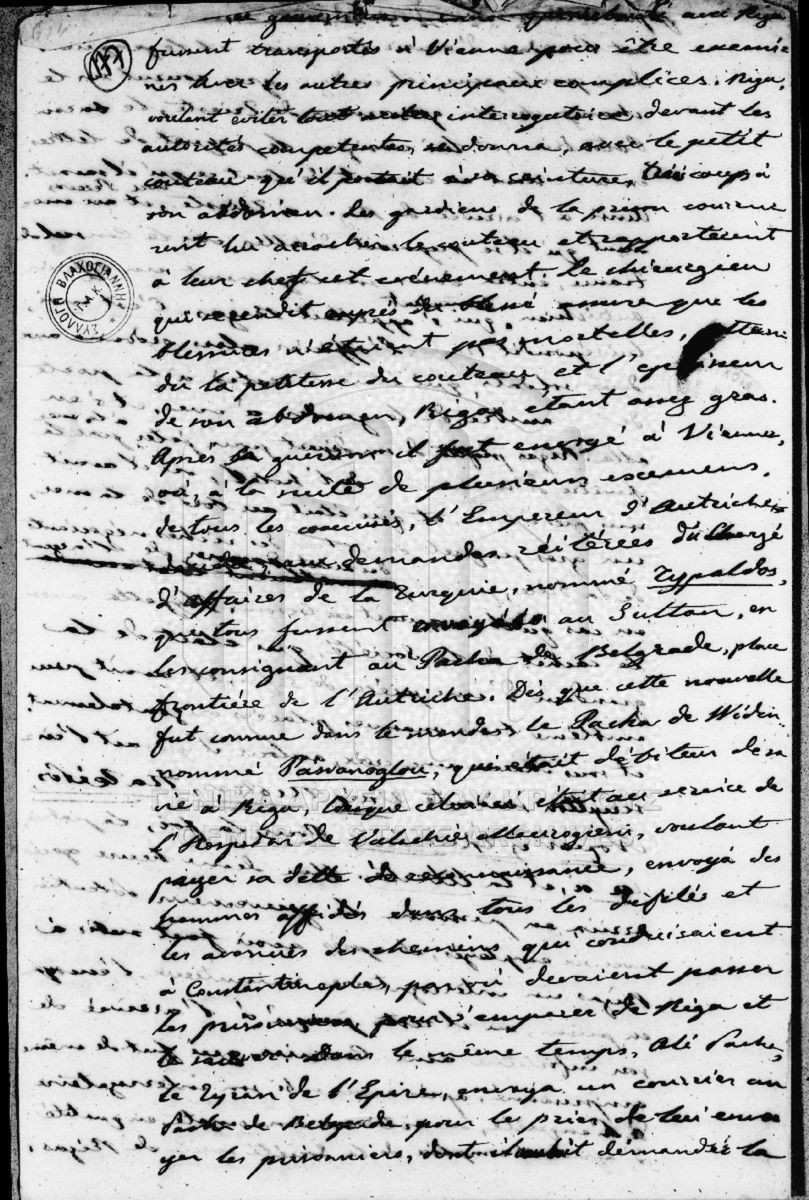 177
fussent transportés à Vienne pour être exami
nés avec les autres principaux complices. Riga,
voulant éviter tout autre interrogatoire devant les
autorités compétentes, se donna, avec le petit
couteau qu'il portait à sa ceinture, trois coups à
son abdomen. Les gardiens de la prison couru
rent lui arracher le couteau et rapportèrent
à leur chef cet événement. Le chirurgien
qui se rendit auprès du blessé assura que les
blessures n'étaient pas mortelles,
dû la petitesse du couteau et l'épaisseur
de son abdomen, Rigas étant assez gras.
Après sa guérison il fut envoyé à Vienne,
où, à la suite de plusieurs examens,
de tous les accusés, l'Empereur d'Autriche
aux demandes réitérées du Chargé
d'affaires de la Turquie, nommé Typaldos,
que tous fussent envoyés au Sultan, en
les consignant au Pacha de Belgrade, place
frontière de l'Autriche. Dès que cette nouvelle
fut connue dans le monde, le Pacha de Widin
nommé Paswanoglou, qui était débiteur de sa
vie à Riga, lorsque celui-ci était au service de
l'Hospodar de Valachie Maurogieni, voulant
payer sa dette de reconnaissance, envoya des
hommes affidés dans tous les défilés et
les avenues des chemins qui conduisaient
à Constantinople, par où devaient passer
les prisonniers, pour s'emparer de Riga et
dans le même temps, Ali Pacha,
le Tyran de l'Epire, envoya un courrier au
Pacha de Belgrade, pour le prier de lui envo
yer les prisonniers, dont il demander la
ΣΥΛΛΟΓΗ ΒΛΑΧΟΓΙΑΝΝΗ
Γ.Α.Κ.